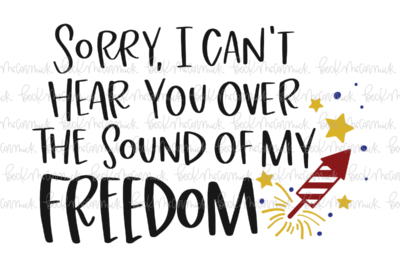 SORRY, I CAN'T
HEAR YOU OVER
THE SOUND OF MY
FREEDOM